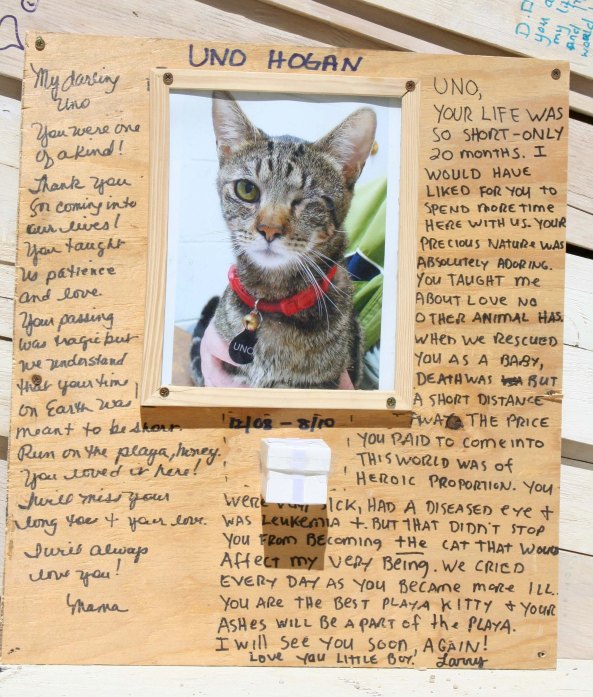 UNO HOGAN
My darling
Uno
You were one
of a kind!
Thank you
for coming into
our lives!
You taught
us patience
and love.
Your passing
was tragic but
we understand
that your time
on Earth was
meant to be short
Run on the playa, honey.
You loved it here!
I will miss your
long toes + your love.
I will always
love you!
Mama
UNO
12/08 - 8/10
UNO,
YOUR LIFE WAS
SO SHORT-ONLY
20 MONTHS. I
WOULD HAVE
LIKED FOR YOU TO
SPEND MORE TIME
HERE WITH US. YOUR
PRECIOUS NATURE WAS
ABSOLUTELY ADORING.
YOU TAUGHT ME
ABOUT LOVE NO
OTHER ANIMAL HAS.
WHEN WE RESCUED
YOU AS A BABY,
DEATH WAS BUT
A SHORT DISTANCE
AWAY. THE PRICE
YOU PAID TO COME INTO
THIS WORLD WAS OF
HEROIC PROPORTION. YOU
WERE VERY SICK, HAD A DISEASED EYE +
WAS LEUKEMIA +. BUT THAT DIDN'T STOP
YOU FROM BECOMING THE CAT THAT WOULD
AFFECT MY VERY BEING. WE CRIED
EVERY DAY AS YOU BECAME MORE ILL.
YOU ARE THE BEST PLAYA KITTY + YOUR
ASHES WILL BE A PART OF THE PLAYA.
I WILL SEE YOU SOON, AGAIN!
LOVE YOU LITTLE BOY. Larry
you a
my li
and
world